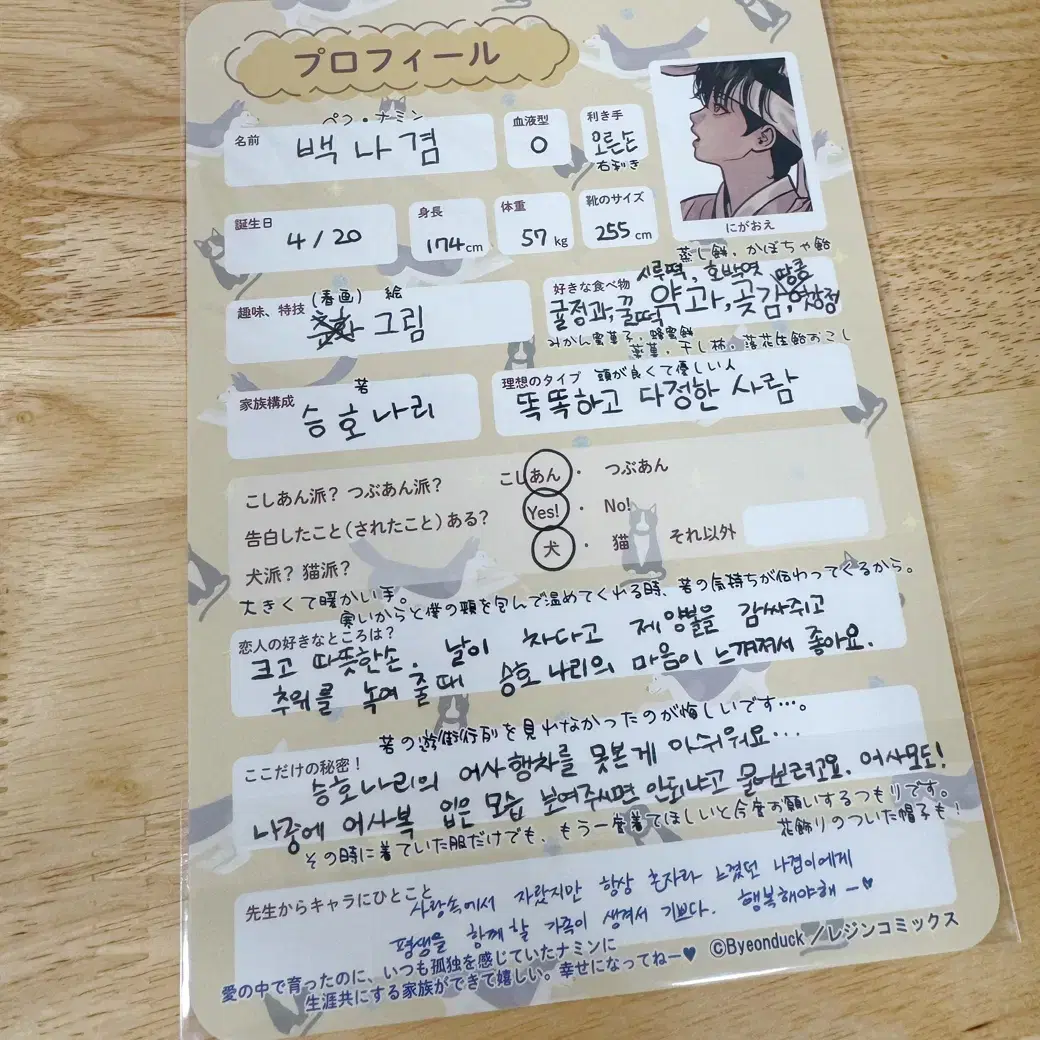 プロフィール
名前
ペク・ナミン
백나겸
血液型
O
利き手
오른손
右利き
にがおえ
誕生日
4/20
身長
174cm
体重
57kg
靴のサイズ
255cm
趣味、特技
(春画) 絵
춘화 그림
好きな食べ物
蒸し餅、かぼちゃ飴
시루떡, 호박엿 땅콩
귤정과, 꿀떡 약과, 곶감, 엿강정
みかん蜜菓子、蜂蜜餅
薬菓、干し柿、落花生飴おこし
家族構成
若
승호 나리
理想のタイプ
頭が良くて優しい人
똑똑하고 다정한 사람
こしあん派? つぶあん派?
こしあん ・ つぶあん
告白したこと(されたこと)ある?
Yes! ・ No!
犬派? 猫派?
犬 ・ 猫 それ以外
大きくて暖かい手。
寒いからと僕の頬を包んで温めてくれる時、若の気持ちが伝わってくるから。
恋人の好きなところは?
크고 따뜻한 손. 날이 차다고 제 양볼을 감싸쥐고
추위를 녹여 줄 때 승호 나리의 마음이 느껴져서 좋아요.
若の遊街行列を見れなかったのが悔しいです…。
ここだけの秘密!
승호 나리의 어사행차를 못본게 아쉬워요...
나중에 어사복 입은 모습 보여주시면 안되냐고 물어보려고요. 어사모도!
その時に着ていた服だけでも、もう一度着てほしいと今度お願いするつもりです。
花飾りのついた帽子も!
先生からキャラにひとこと
사랑속에서 자랐지만 항상 혼자라 느꼈던 나겸이에게
평생을 함께할 가족이 생겨서 기쁘다. 행복해야해ー♥
愛の中で育ったのに、いつも孤独を感じていたナミンに
生涯共にする家族ができて嬉しい。幸せになってねー♥
©Byeonduck/レジンコミックス